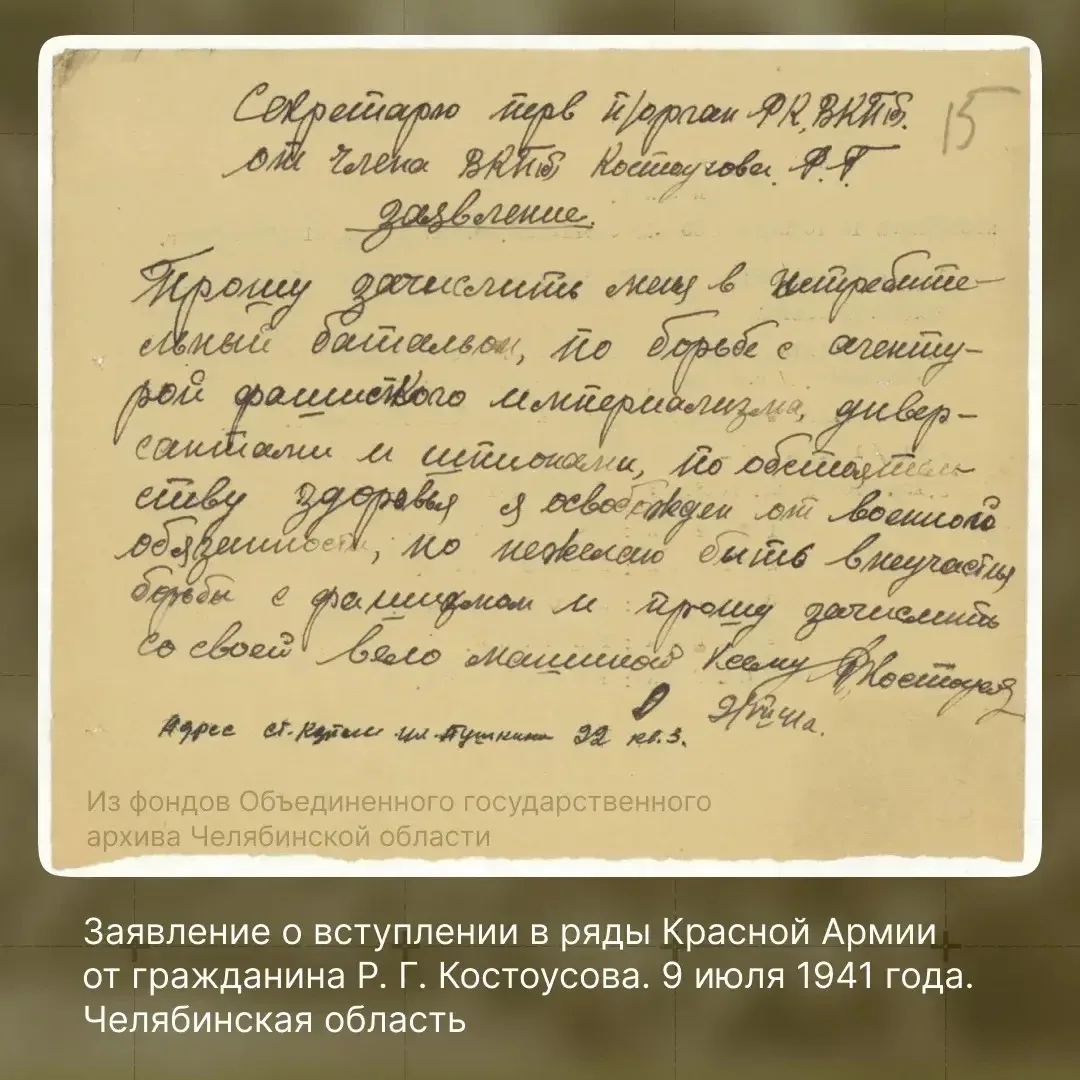 Секретарю перв п/орган РК, ВКПб.
15
от члена ВКПб Костоусова. Р. Г
заявление.
Прошу зачислить меня в истребите-
льный батальон, по борьбе с агенту-
рой фашисткого империализма, дивер-
сантами и шпионами, по обстоятель
ству здоровья я освобожден от военного
обязанности, но нежелаю быть внеучастия
борьбы с фашизмом и прошу зачислить
со своей вело машиной к сему Р Костоусов
9/VII 41 а.
Адрес ст. ул. Пушкина 22 кв. 3.
Из фондов Объединенного государственного
архива Челябинской области
Заявление о вступлении в ряды Красной Армии
от гражданина Р. Г. Костоусова. 9 июля 1941 года.
Челябинская область